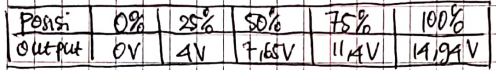 Posisi 0% 25% 50% 75% 100%
Output 0V 4V 7,65V 11,4V 14,94V